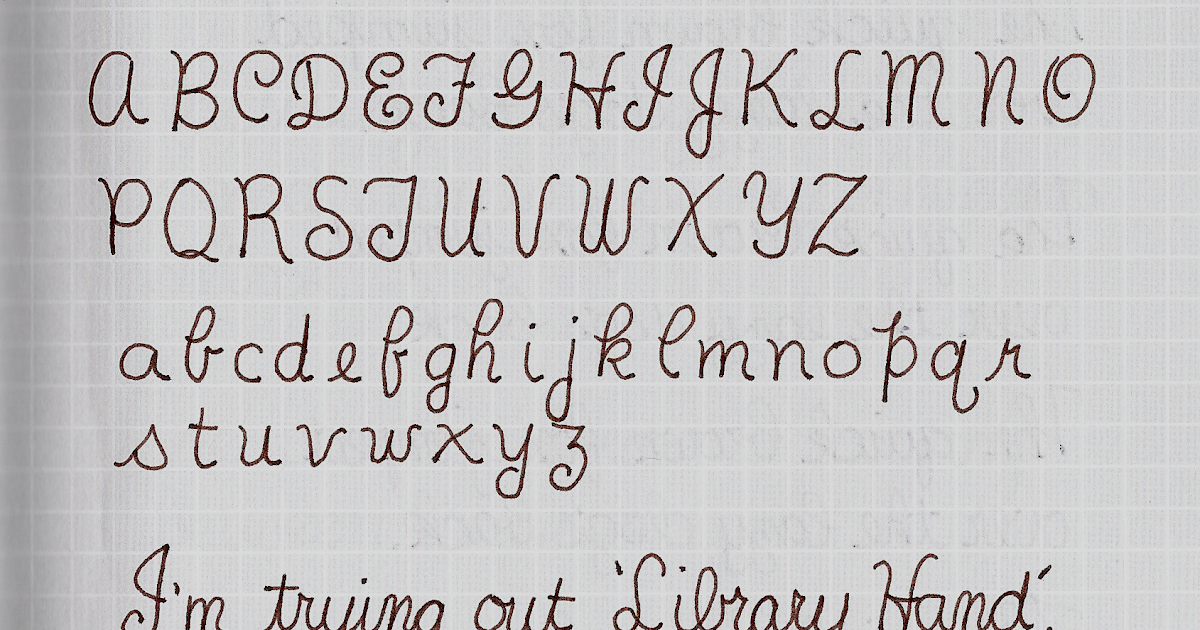 A B C D E F G H I J K L M N O
P Q R S T U V W X Y Z
a b c d e f g h i j k l m n o p q r
s t u v w x y z
I'm trying out 'Library Hand'.